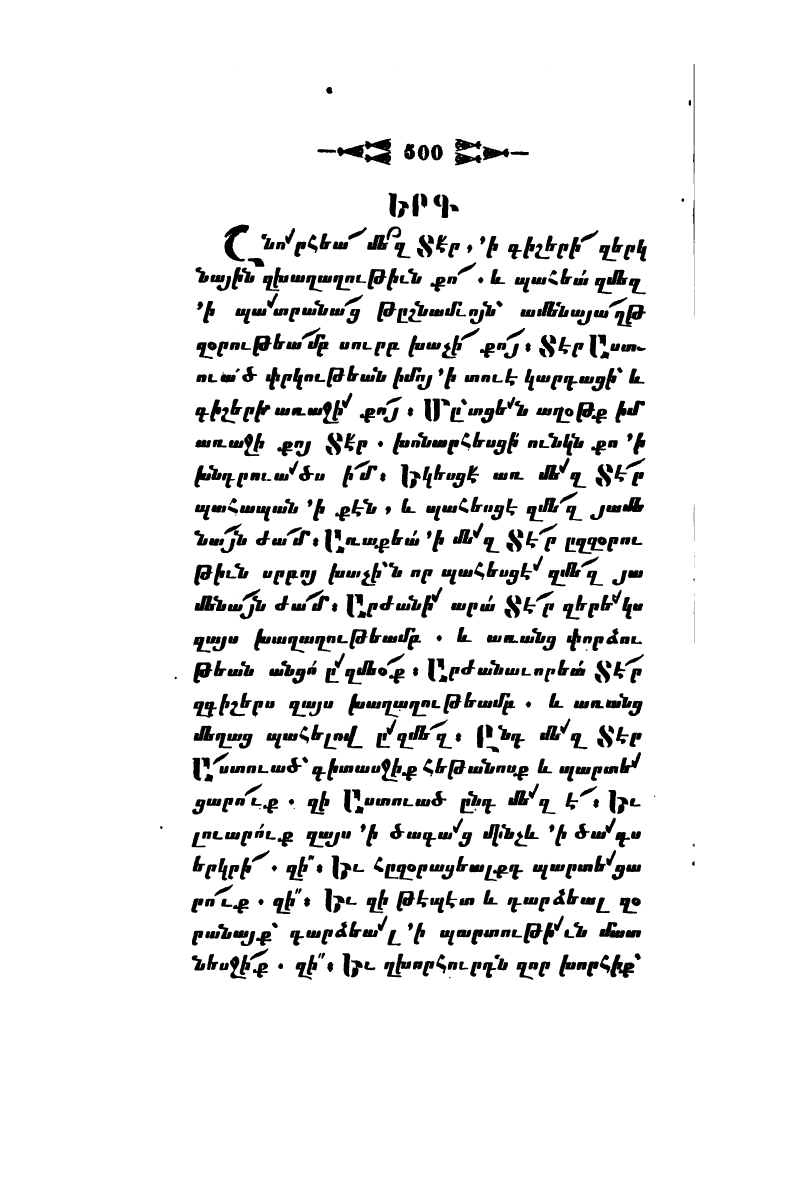 500
ԵՐԳ
Շնո՛րհեա՜ մե՛զ Տէր, ՚ի գիշերի՜ զերկ
նային զխաղաղութիւն քո՜. և պահեա՛ զմեզ
՚ի պա՛տրանա՜ց թըշնամւոյն՝ ամենայա՜ղթ
զօրութեա՜մբ սուրբ խաչի՜ քո՜յ։ Տէր Աստ֊
ուա՛ծ փրկութեան իմոյ ՚ի տուէ կարդացի՝ և
գիշերի առաջի՛ քո՜յ։ Մը՝տցե՛ն աղօթք իմ
առաջի քոյ Տէր. խոնարհեսցի՛ ունկն քո ՚ի
խնդրուա՛ծս ի՜մ։ Եկեսցէ առ մե՛զ Տէ՜ր
պահապան ՚ի քէն, և պահեսցէ զմե՜զ յամե
նա՜յն ժա՜մ։ Առաքեա՛ ՚ի մե՛զ Տէ՜ր ըզզօրու
թիւն սրբոյ խաչի՝ն որ պահեսցէ՛ զմե՜զ յա
մենա՜յն ժա՜մ։ Արժանի՛ արա՛ Տէ՜ր զերե՛կս
զայս խաղաղութեամբ. և առանց փորձու
թեան անցո՛ ը՛զմեօ՜ք։ Արժանաւորեա՛ Տէ՜ր
զգիշերս զայս խաղաղութեամբ. և առանց
մեղաց պահելով ը՛զմե՜զ։ Ընդ մե՛զ Տէր
Ա՜ստուած՝ գիտասջիք հեթանոսք և պարտե՛
ցարո՜ւք. զի Աստուած ընդ մե՛զ է՜։ Եւ
լուարո՛ւք զայս ՚ի ծագա՛ց մինչև ՚ի ծա՛գս
երկրի՜. զի՞։ Եւ հըզօրացեալքդ պարտե՛ցա
րո՜ւք. զի՞։ Եւ զի թէպէտ և դարձեալ զօ
րանայք՝ դարձեա՛լ ՚ի պարտութի՛ւն մատ
նեսջի՜ք. զի՞։ Եւ զխորհուրդն զոր խորհիք՝